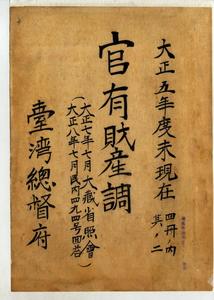 大正五年度末現在
四冊ノ内
其ノ二
官有財産調
大正七年七月大蔵省照會
大正八年七月民内四九四号回答
臺灣總督府